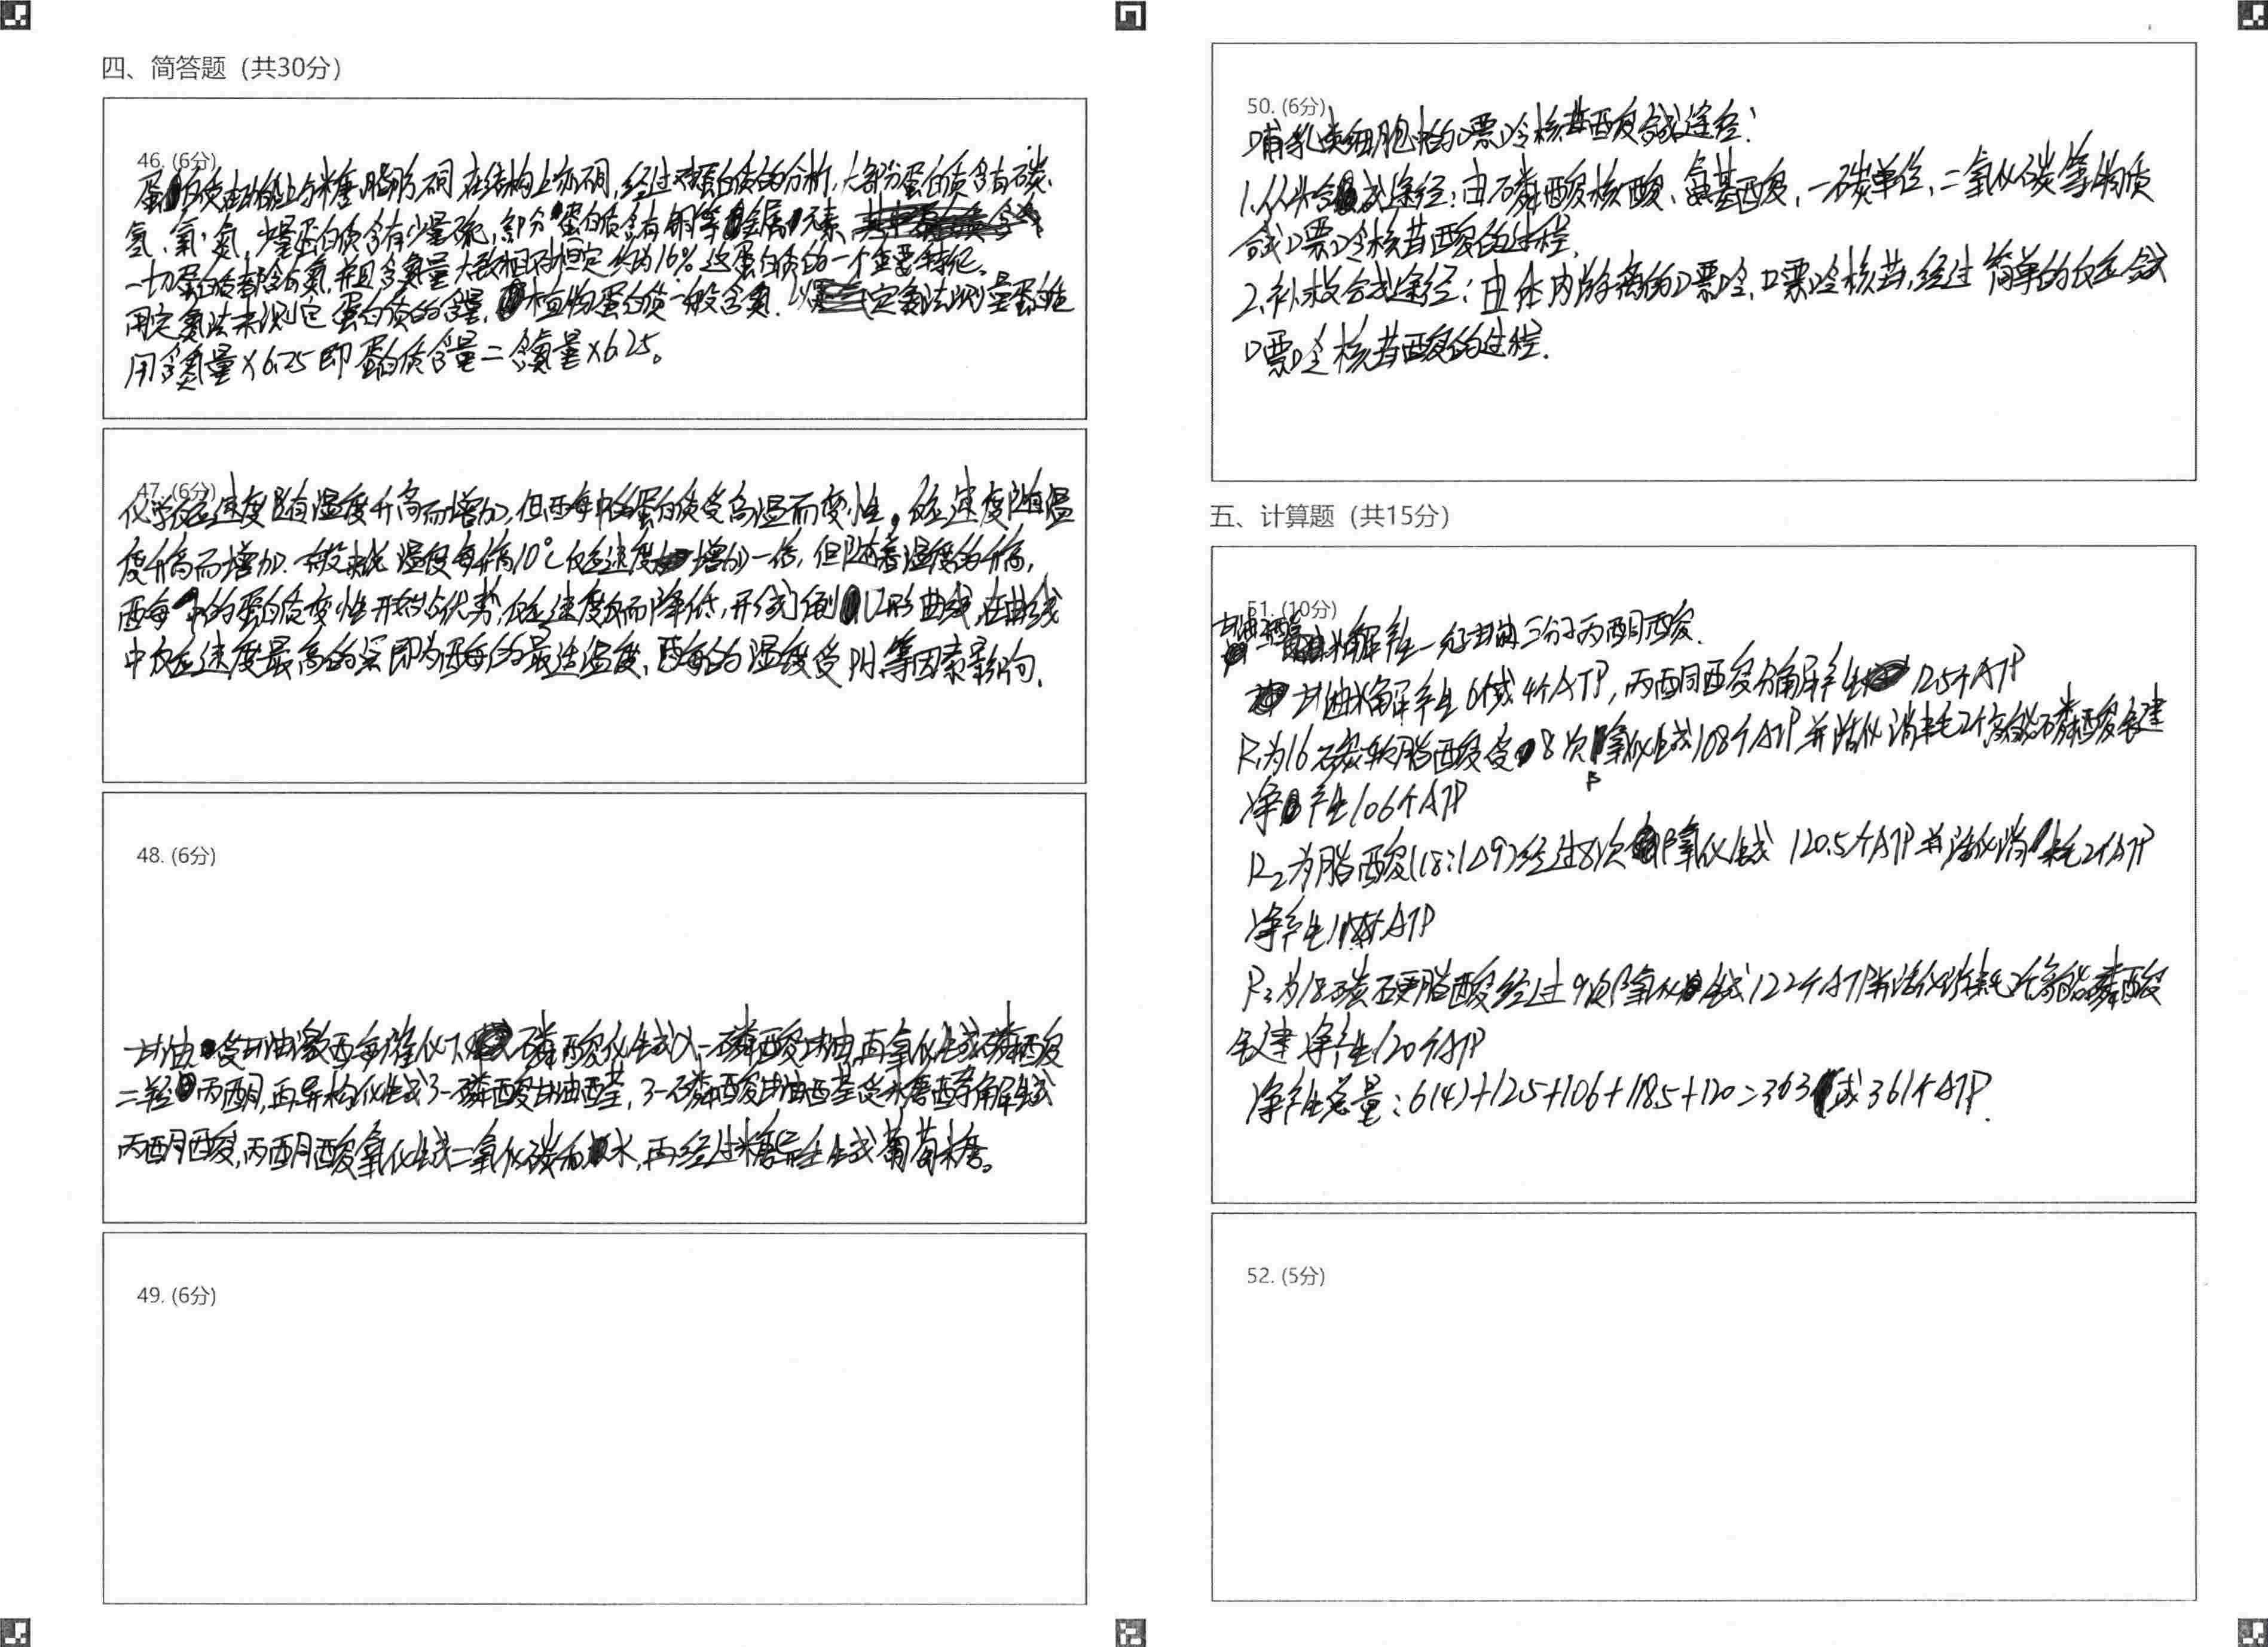 四、简答题（共30分）
46. (6分)
蛋白质在功能上与糖、脂肪不同，在结构上亦不同，经过对蛋白质的分析，大部分蛋白质含有碳、
氢、氧、氮，少量蛋白质含有少量硫，部分蛋白质含有铜等金属元素，
一切蛋白质都含有氮，并且含氮量大致相对恒定约为16%，这蛋白质的一个重要特征。
用定氮法来测定蛋白质的含量，植物蛋白质一般含氮，定氮法测量蛋白质
用含氮量×6.25即蛋白质含量=含氮量×6.25。
47. (6分)
化学反应速度随温度升高而增加，但酶中的蛋白质受高温而变性。反应速度随温
度升高而增加，一般来说温度每升高10℃反应速度增加一倍，但随着温度的升高，
酶中的蛋白质变性开始占优势，反应速度反而降低，形成倒U形曲线，在曲线
中反应速度最高的点即为酶的最适温度，酶的温度受PH等因素影响。
48. (6分)
甘油受甘油激酶催化下磷酸化生成α-磷酸甘油，再氧化生成磷酸
二羟丙酮，再异构化生成3-磷酸甘油醛，3-磷酸甘油醛受糖酵解生成
丙酮酸，丙酮酸氧化生成二氧化碳和水，再经过糖异生生成葡萄糖。
49. (6分)
50. (6分)
哺乳类细胞中的嘌呤核苷酸合成途径：
1.从头合成途径：由磷酸核酸、氨基酸、一碳单位、二氧化碳等物质
合成嘌呤核苷酸的过程。
2.补救合成途径：由体内游离的嘌呤、嘌呤核苷，经过简单的反应合成
嘌呤核苷酸的过程。
五、计算题（共15分）
51. (10分)
水解产生一分子甘油三分子丙酮酸。
甘油水解产生6个或4个ATP，丙酮酸分解产生12.5个ATP
R₁为16碳软脂酸受8次β氧化生成108个ATP并活化消耗2个高能磷酸键
净产生106个ATP
R₂为脂酸(18:1Δ9)经过8次β氧化生成120.5个ATP并活化消耗2个ATP
净产生118.5个ATP
R₃为18碳硬脂酸经过9次β氧化生成122个ATP并活化消耗2个高能磷酸
键净产生120个ATP
净产生总量：6(4)+12.5+106+118.5+120=363或361个ATP.
52. (5分)